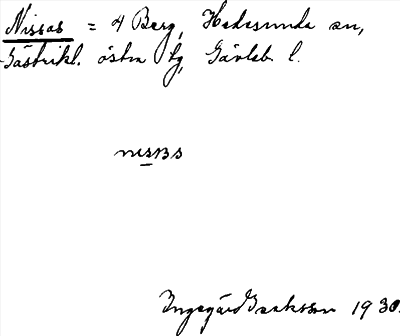 Nissas = 4 Berg, Hedesunda sn,
Gästrikl. östra tg, Gävleb. l.
nɪsɐs
Ingegärd Isaksson 1930.